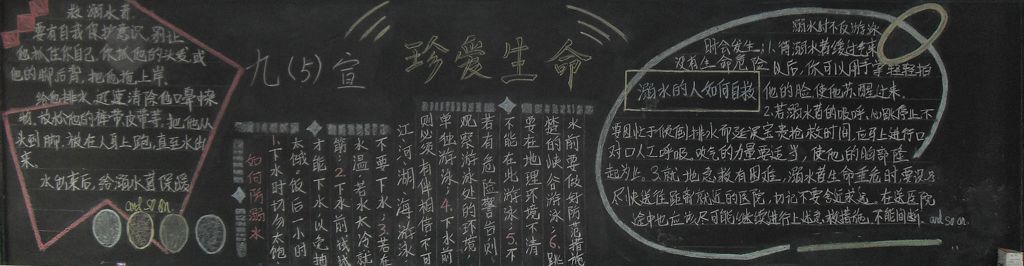 救溺水者
要有自我保护意识，别让
他抓住你自己，你抓他的头发或
他的脚后背，把他拖上岸。
给他排水，迅速清除他口鼻
物，放松他的裤带皮带等，把他从
头到脚，被在人身上跑，直至水出
来。
水出来后，给溺水者保暖
and so on.
九(5)宣
珍爱生命
如何防溺水
1.下水时切勿太饱、
太饿。饭后一小时
才能下水，以免抽
筋；2.下水前试试
水温，若水太冷就
不要下水；3.若在
江河湖海游泳，
则必须有伴相陪，不可
单独游泳；4.下水前
观察游泳处的环境，
若有危险警告，则
不能在此游泳；5.不
要在地理环境不清
楚的峡谷游泳；6.跳
水前要做好防范措施
溺水的人如何自救
溺水时不及游泳
时会发生：1.背溺水者绕过来
没有生命危险以后，你可以用手轻轻拍
他的脸使他苏醒过来。
2.若溺水者的呼吸、心跳停止，不
要因忙于倾倒排水而延误宝贵抢救时间，应马上进行口
对口人工呼吸，吹气的力量要适当，使他的胸部隆
起为止。3.就地急救有困难，溺水者生命垂危时要以
尽快送往距离就近的医院，切记不要舍近求远。在送医院
途中也应该尽可能继续进行上述急救措施，不能间断。and so on.